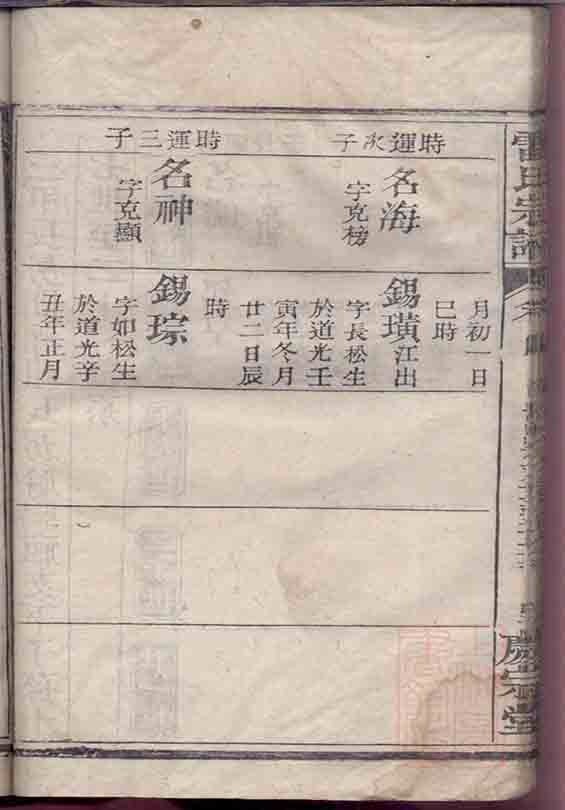 雷氏宗譜
慶宗堂
時運次子
名海
字克榜
月初一日
巳時
錫璜江出
字長松生
於道光壬
寅年冬月
廿二日辰
時
時運三子
名神
字克顯
錫琮
字如松生
於道光辛
丑年正月